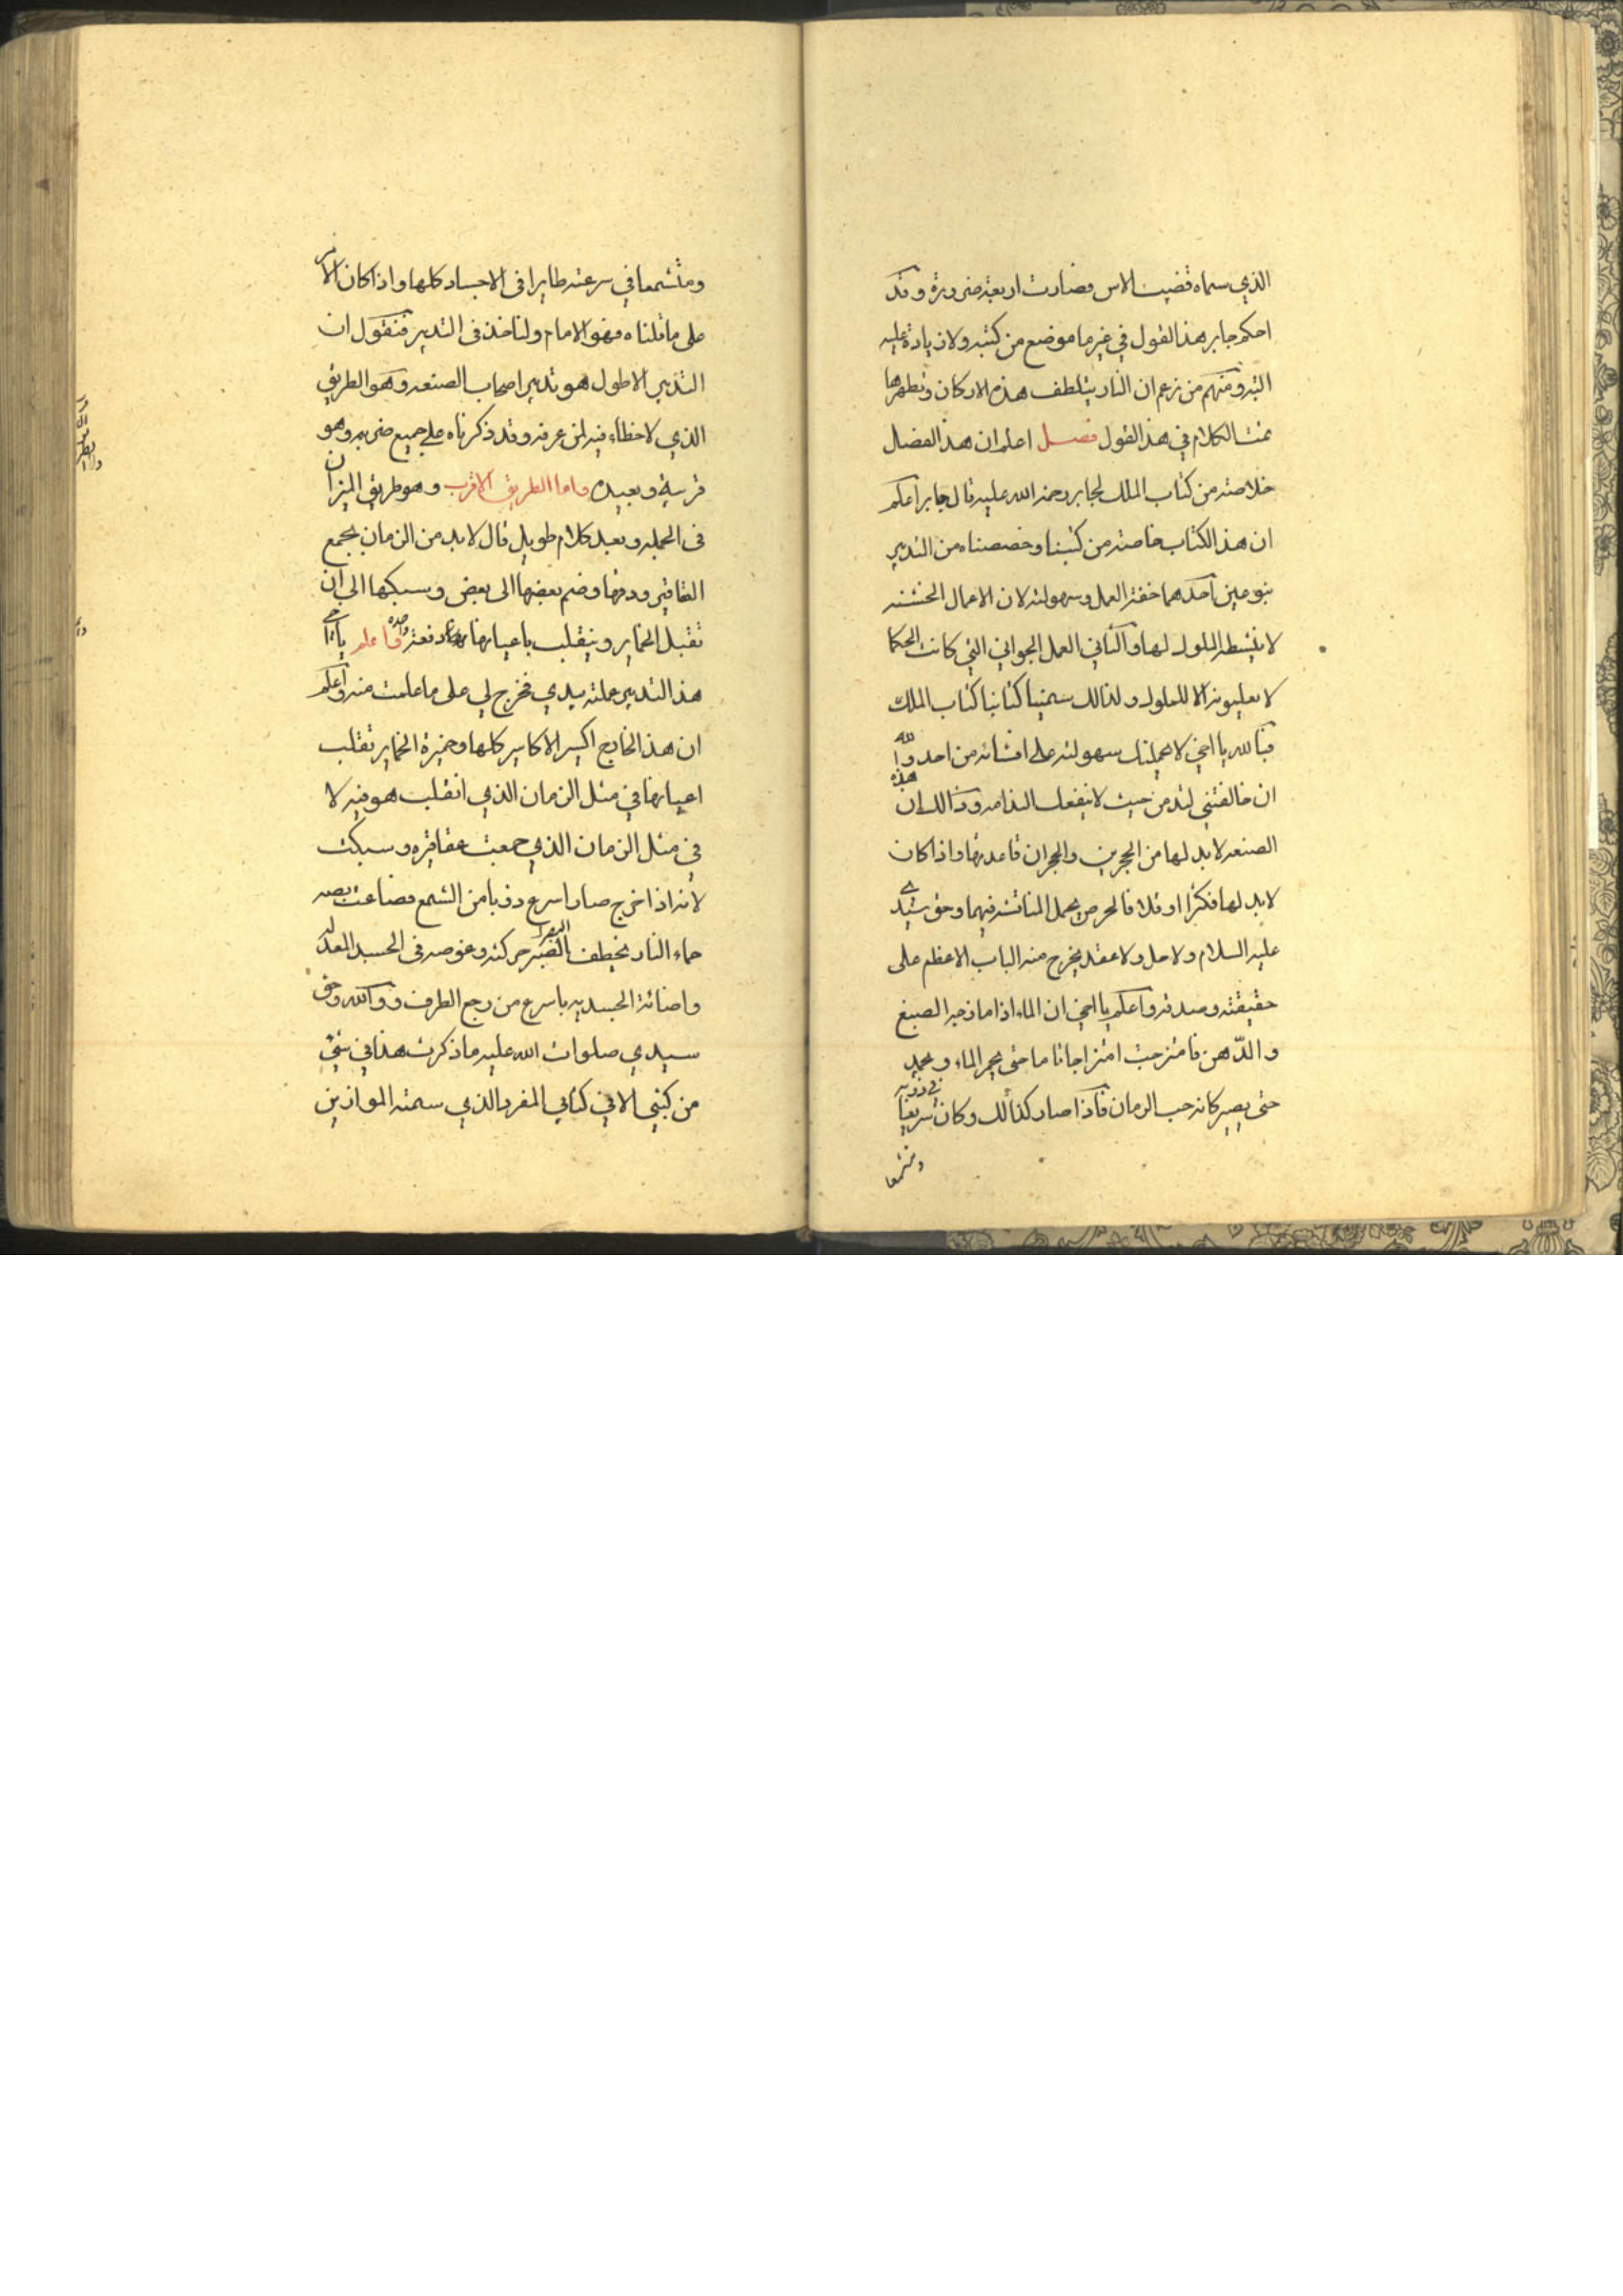 الذي سماه قضيب الاس فصارت اربعة ضرورة وقد
احكم جابر هذا القول في غير ما موضع من كتبه ولا زيادة عليه
البته ومنهم من زعم ان النار يتلطف هذه الاركان وتطهرها
تمت الكلام في هذا القول فصل اعلم ان هذا الفصل
خلاصته من كتاب الملك لجابر رحمة الله عليه قال جابر اعلم
ان هذا الكتاب خاصته من كتبنا وخصصناه من التدبير
بنوعين احدهما خفة العمل وسهولته لان الاعمال الخشنه
لا ينشط الملوك لها والثاني العمل الجواني التي كانت الحكما
لا يعليونه الا للملوك ولذالك سمينا كتابنا كتاب الملك
فبالله يا اخي لا يحملنك سهولته على افشائه من احد والله
ان خالفتني لتدمن حيث لا ينفعك الندامه وذالك ان هذه
الصنعه لا بد لها من الحجرين والحجران قاعدتها واذا كان
لا بد لها فكثرا او قللا فالحرص يحمل المناقشه فيهما وحق سيدي
عليه السلام ولا حل ولا عقد يخرج منه الباب الاعظم على
حقيقته وصدقه واعلم يا اخي ان الماء اذا مازجه الصبغ
والدهن فامتزجت امتزاجا تاما حتى يحمر الماء ويجمد
حتى يصير كانه حب الرمان فاذا صار كذالك وكان سريعا في ذوبه
ومتشمعا
ومتشمعا في سرعته طايرا في الاجساد كلها واذا كان الامر
على ما قلناه فهو الامام ولناخذ في التدبير فنقول ان
التدبير الاطول هو تدبير اصحاب الصنعه وهو الطريق
الذي لا خطاء فيه لمن عرفه وقد ذكرناه على جميع ضروبه وهو
قريبة وبعيده واما الطريق الاقرب وهو طريق الميزان
في الجمله وبعد كلام طويل قال لابد من الزمان بجمع
العقاقير ودقها وضم بعضها الى بعض وسبكها الى ان
تقبل الخماير وينقلب باعيارها دفعة واحده فاعلم يا اخي ان
هذا التدبير عملته بيدي فخرج لي على ما علمت منه واعلم
ان هذا الخارج اكسير الاكاسير كلها وخميرة الخماير تقلب
اعيارها في مثل الزمان الذي انقلب هو فيه لا
في مثل الزمان الذي جمعت عقاقيره وسبكت
لانه اذا خرج صار اسرع ذوبا من الشمع فضاعت بصه
حماء النار يخطف البصر حركته وغوصه في الجسد المعدله
واضائة الجسد به باسرع من رجع الطرف ووالله وحق
سيدي صلوات الله عليه ما ذكرت هذا في شئ
من كتبي الا في كتابي المفرد الذي سمته الموازين